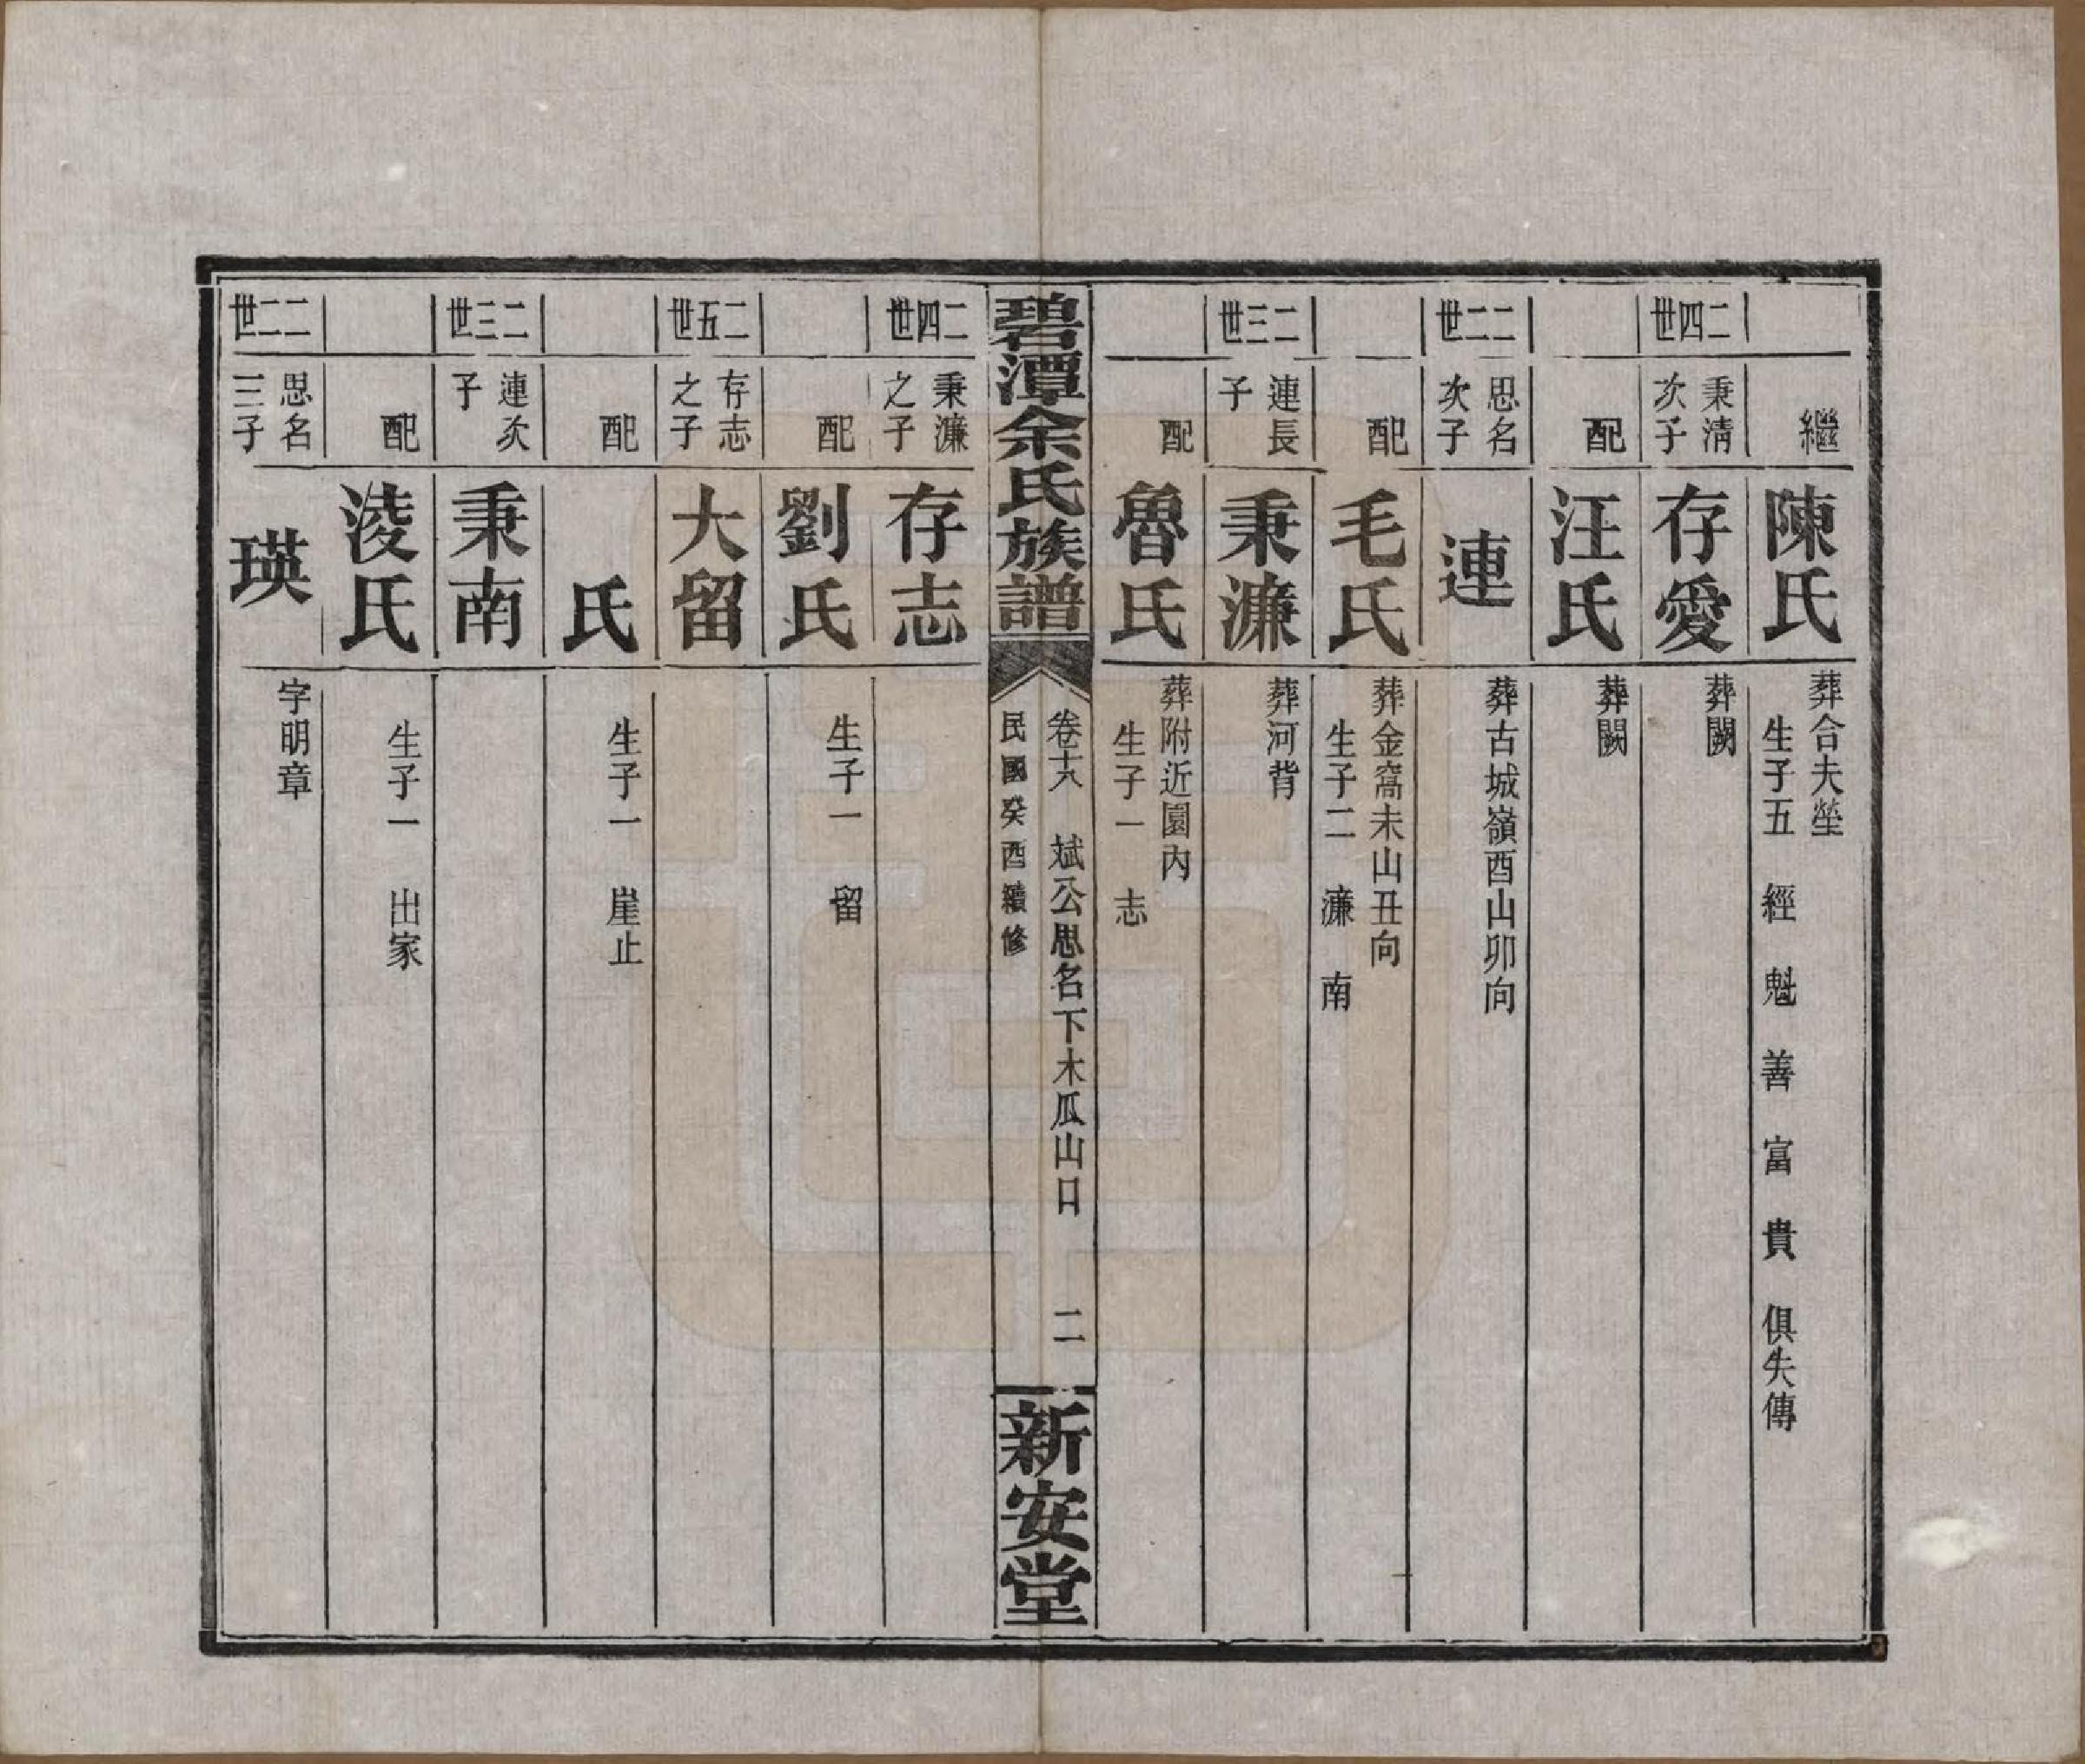 繼
陳氏
葬合夫塋
生子五 經 魁 善 富 貴 俱失傳
二四世
秉清
次子
存愛
葬闕
配
汪氏
葬闕
二二世
思名
次子
連
葬古城嶺酉山卯向
配
毛氏
葬金窩未山丑向
生子二 濂 南
二三世
連長
子
秉濂
葬河背
配
魯氏
葬附近園內
生子一 志
碧潭余氏族譜
卷十八 斌公思名下木瓜山口 二
民國癸酉續修
新安堂
二四世
秉濂
之子
存志
配
劉氏
生子一 留
二五世
存志
之子
大留
配
氏
生子一 崖止
二三世
連次
子
秉南
配
淩氏
生子一 出家
二二世
思名
三子
瑛
字明章